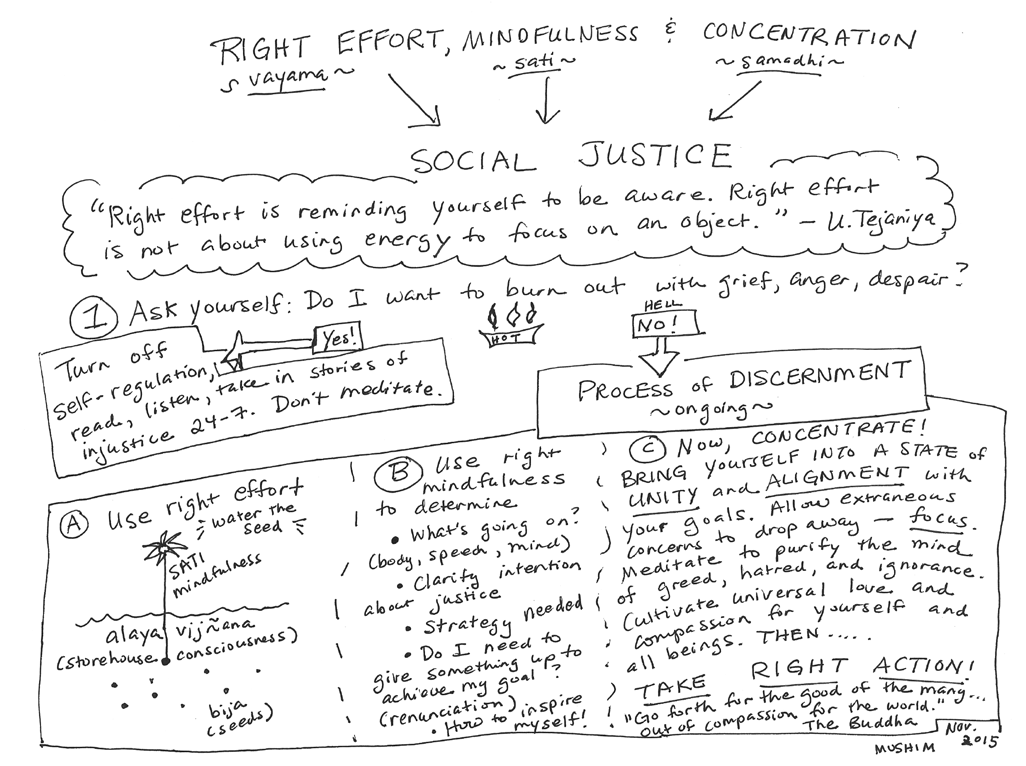 RIGHT EFFORT, MINDFULNESS & CONCENTRATION
~ vayama ~ ~ sati ~ ~ samadhi ~
SOCIAL JUSTICE
"Right effort is reminding yourself to be aware. Right effort
is not about using energy to focus on an object." – U. Tejaniya
1 Ask yourself: Do I want to burn out with grief, anger, despair?
HOT
HELL
NO!
Yes!
Turn off
self-regulation,
read, listen, take in stories of
injustice 24-7. Don't meditate.
PROCESS OF DISCERNMENT
~ ongoing ~
A Use right effort
water the
seed
SATI
mindfulness
alaya vijñana
(storehouse consciousness)
bija
(seeds)
B Use right
mindfulness
to determine
• What's going on?
(body, speech, mind)
• Clarify intention
about justice
• Strategy needed
• Do I need to
give something up to
achieve my goal?
(renunciation)
• How to inspire
myself!
C Now, CONCENTRATE!
BRING YOURSELF INTO A STATE OF
UNITY and ALIGNMENT with
your goals. Allow extraneous
concerns to drop away — focus.
Meditate to purify the mind
of greed, hatred, and ignorance.
Cultivate universal love and
compassion for yourself and
all beings. THEN .....
TAKE RIGHT ACTION!
"Go forth for the good of the many...
out of compassion for the world."
The Buddha
Nov.
2015
MUSHIM